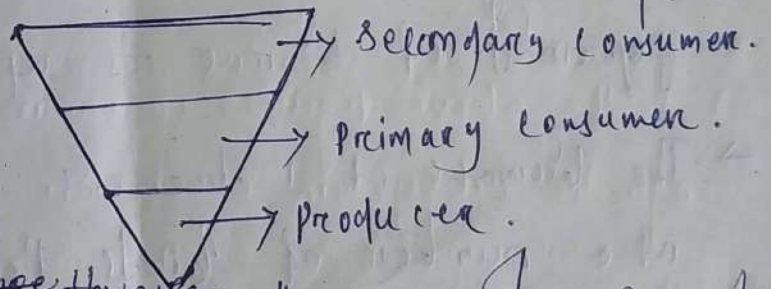 Secondary Consumer.
Primary Consumer.
Producer.